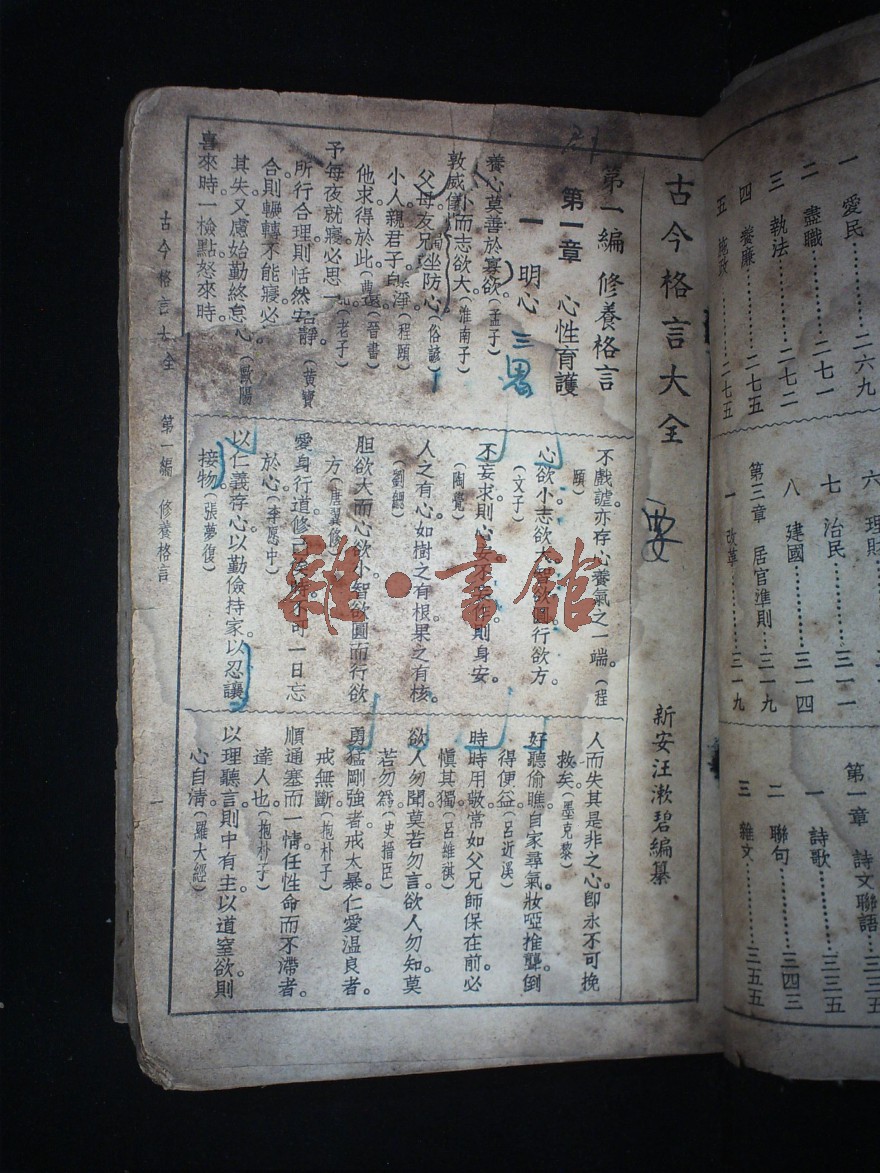 古今格言大全
新安汪漱碧編纂
第一編 修養格言
第一章 心性育護
一 明心
養心莫善於寡欲。(孟子)
小而志欲大。(淮南子)
敦威儀
父母友兄 坐防心。(俗諺)
小人親君子 淨(程頤)
他求得於此。(晉書)
(老子)
予每夜就寢必思一
所行合理則恬然安靜
合則輾轉不能寢必
(黃寶
其失又慮始勤終怠心
(歐陽
喜來時一檢點怒來時
不戲謔亦存心養氣之一端。(程
頤)
心欲小志欲大智欲圓行欲方。
(文子)
不妄求則心安不妄作則身安。
(陶覺)
人之有心如樹之有根果之有核。
(劉勰)
胆欲大而心欲小智欲圓而行欲
方(唐翼修)
愛身行道修己俟時不可一日忘
於心(李愿中)
以仁義存心以勤儉持家以忍讓
接物(張夢復)
人而失其是非之心卽永不可挽
救矣。(墨克黎)
好聽偷瞧自家尋氣妝啞推聾倒
得便益(呂近溪)
時時用敬常如父兄師保在前必
愼其獨(呂維祺)
欲人勿聞莫若勿言欲人勿知莫
若勿爲(史搢臣)
勇猛剛強者戒太暴仁愛温良者
戒無斷(抱朴子)
順通塞而一情任性命而不滯者
達人也(抱朴子)
以理聽言則中有主以道窒欲則
心自清(羅大經)
古今格言大全 第一編 修養格言 一
一 愛民 二六九
二 盡職 二七一
三 執法 二七二
四 養廉 二七五
五 施政 二七五
六 理財
七 治民 三一一
八 建國 三一四
第三章 居官準則 三一九
一 改革 三一九
第一章 詩文聯語 三三五
一 詩歌 三三五
二 聯句 三四三
三 雜文 三五五
雜·書館